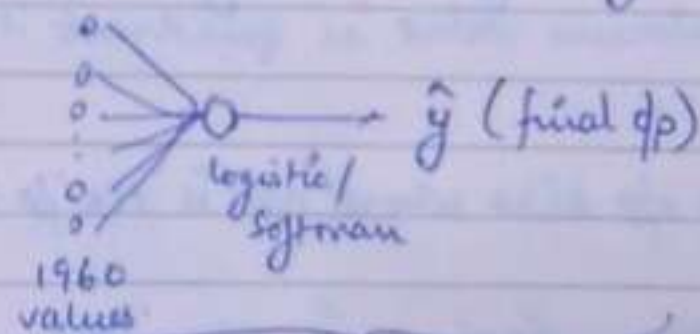 ŷ (final o/p)
logistic/
Softmax
1960
values